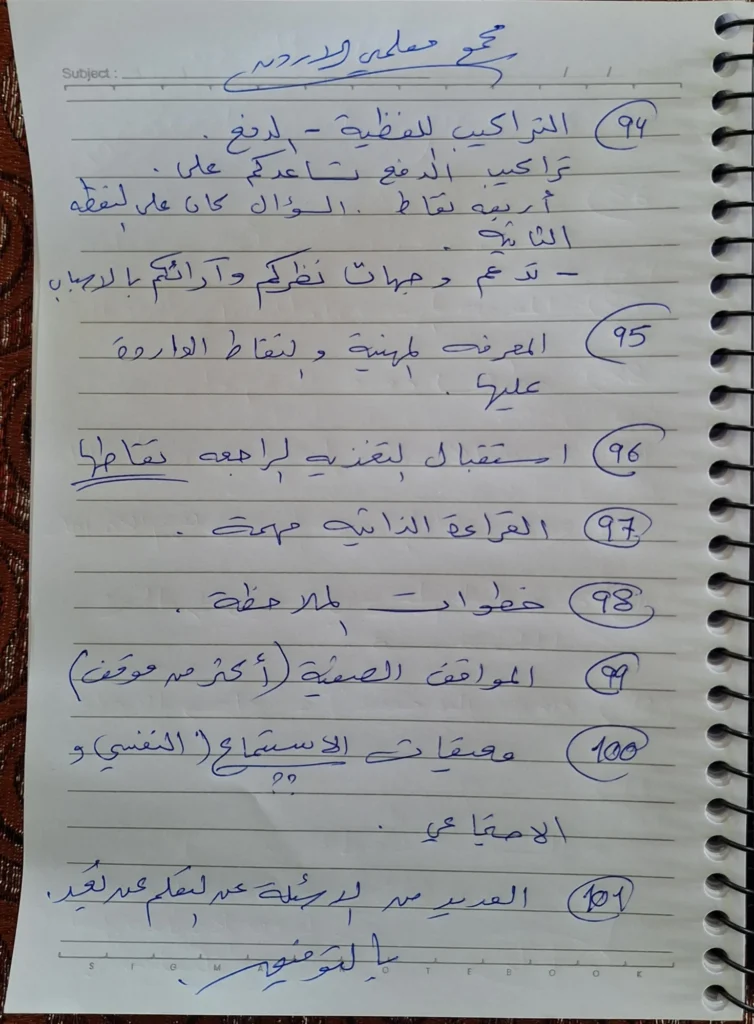 مجمع معلمي الاردن
Subject :
94 التراكيب اللفظية - الدفع .
تراكيب الدفع تساعدكم على .
أربعه نقاط . السؤال كان على النقطه
الثانيه .
- تدعم وجهات نظركم وآرائكم بالاسباب
95 المعرفه المهنية والنقاط الواردة
عليها .
96 استقبال التغذيه الراجعه نقاطها
97 القراءة الذاتيه مهمة .
98 خطوات الملاحظة .
99 المواقف الصفية (أكثر من موقف)
100 معيقات الاستماع (النفسي) و
??
الاجتماعي .
101 العديد من الاسئلة عن التعلم عن بُعد .
بالتوفيق .
SIGMA NOTEBOOK